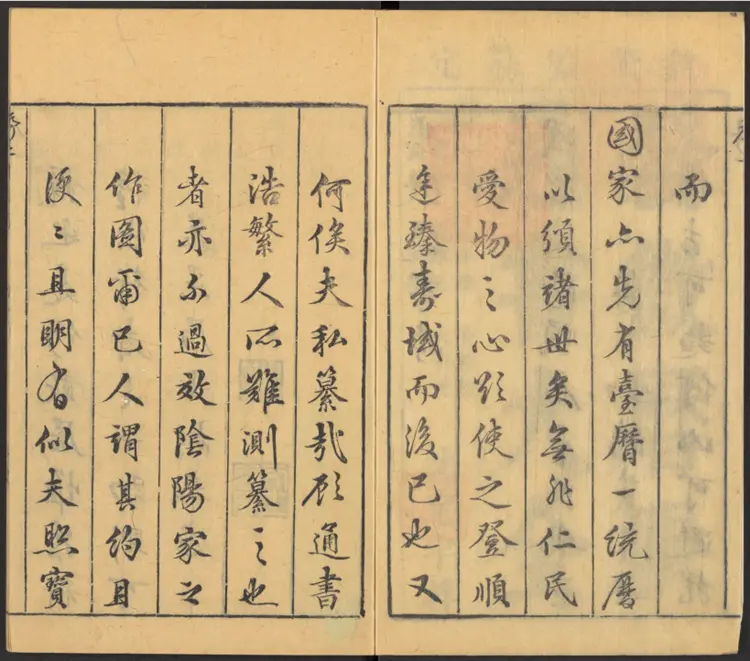 而
國家亦先有臺曆一統曆
以頒諸世矣無非仁民
愛物之心欲使之登順
途臻壽域而後已也又
何俟夫私纂哉顧通書
浩繁人所難測纂之也
者亦不過效陰陽家之
作圖爾已人謂其約且
便〻且明有似夫照寶